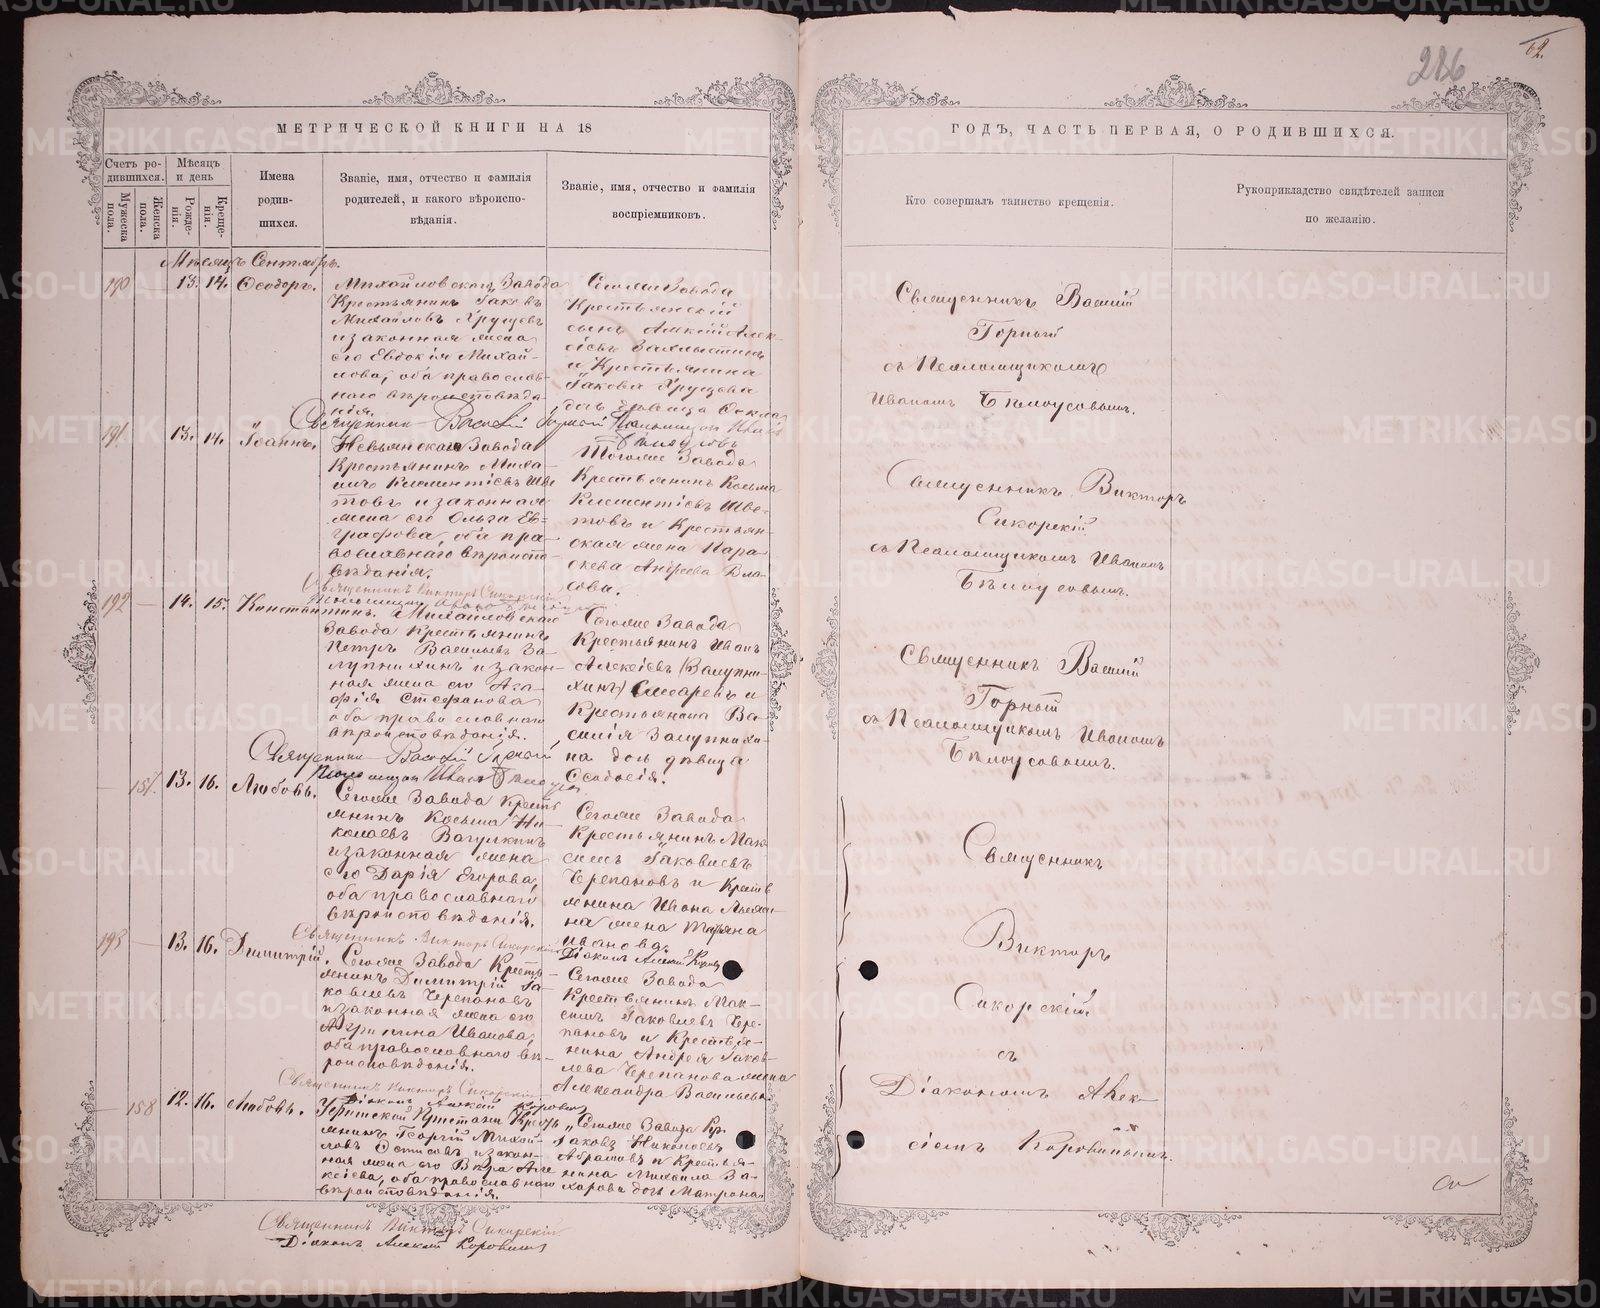 286
62.
МЕТРИЧЕСКОЙ КНИГИ НА 18
ГОДЪ, ЧАСТЬ ПЕРВАЯ, О РОДИВШИХСЯ.
Счетъ ро-
дившихся.
Мужеска
пола.
Женска
пола.
Мѣсяцъ
и день
Рожде-
нія.
Креще-
нія.
Имена
родив-
шихся.
Званіе, имя, отчество и фамилія
родителей, и какого вѣроиспо-
вѣданія.
Званіе, имя, отчество и фамилія
воспріемниковъ.
Кто совершалъ таинство крещенія.
Рукоприкладство свидѣтелей записи
по желанію.
Мѣсяцъ Сентябрь.
190 13. 14. Ѳеодоръ.
Михайловскаго Завода
Крестьянинъ Іаковъ
Михайловъ Хрущевъ
и законная жена
его Евдокія Михай-
лова, оба православ-
наго вѣроисповѣда-
нія.
Сегоже Завода
Крестьянскій
сынъ Алексій Алек-
сіевъ
и Крестьянина
Іакова Хрущева
дочь дѣвица
Священникъ Василій Горный
Священникъ Василій
Горный
съ Псаломщикомъ
Иваномъ Бѣлоусовымъ.
191. 13. 14. Іоаннъ.
Невьянскаго Завода
Крестьянинъ Миха-
илъ Климентіевъ Шве-
товъ и законная
жена его Ольга Ев-
графова, оба пра-
вославнаго вѣроиспо-
вѣданія.
Тогоже Завода
Крестьянинъ Косьма
Климентіевъ Шве-
товъ и Крестьян-
ская жена Пара-
скева Андреева Вла-
сова.
Священникъ Викторъ Сикорскій
Священникъ Викторъ
Сикорскій
съ Псаломщикомъ Иваномъ
Бѣлоусовымъ.
192 — 14. 15. Константинъ.
Михайловскаго
Завода Крестьянинъ
Петръ Васильевъ За-
лупнихинъ и закон-
ная жена его Ага-
фія Стефанова
оба православнаго
вѣроисповѣданія.
Сегоже Завода
Крестьянинъ Иванъ
Алексіевъ (Залупни-
хинъ) Слесаревъ и
Крестьянина Ва-
силія Залупнихи-
на дочь дѣвица
Ѳеодосія.
Священникъ Василій Горный
Псаломщикъ Иванъ Бѣлоусовъ
Священникъ Василій
Горный
съ Псаломщикомъ Иваномъ
Бѣлоусовымъ.
— 157. 13. 16. Любовь.
Сегоже Завода Кресть-
янинъ Косьма Ни-
колаевъ Вагулкинъ
и законная жена
его Дарія Егорова,
оба православнаго
вѣроисповѣданія.
Сегоже Завода
Крестьянинъ Мак-
симъ Іаковлевъ
Черепановъ и Кресть-
янина Ивана
на жена
Иванова.
Священникъ Викторъ Сикорскій
Діаконъ Алексій Коровинъ
193 — 13. 16. Димитрій.
Сегоже Завода Кресть-
янинъ Димитрій Іа-
ковлевъ Черепановъ
и законная жена его
Агрипина Иванова,
оба православнаго вѣ-
роисповѣданія.
Сегоже Завода
Крестьянинъ Мак-
симъ Іаковлевъ Чере-
пановъ и Крестья-
нина Андрея Іаков-
лева Черепанова жена
Александра Васильева
Священникъ Викторъ Сикорскій
Діаконъ Алексій Коровинъ
— 158 12. 16. Любовь.
Уфимской Пристани Кресть-
янинъ Георгій Михай-
ловъ и закон-
ная жена его Вѣра Але-
ксіева, оба православнаго
вѣроисповѣданія.
Сегоже Завода Кр.
Іаковъ Николаевъ
Абрамовъ и Крестья-
нина Михаила За-
харова дочь Матрона
Священникъ
Викторъ
Сикорскій
съ
Діакономъ Алек-
сіемъ Коровинымъ.
Священникъ Викторъ Сикорскій
Діаконъ Алексій Коровинъ
METRIKI.GASO-URAL.RU